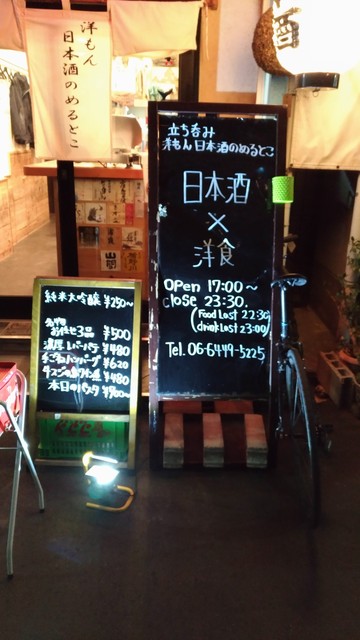 洋もん
日本酒のめるとこ
酒
立ち呑み
洋もん日本酒のめるとこ
日本酒
×
洋食
Open 17:00〜
Close 23:30.
(Food Last 22:30
drink Last 23:00)
Tel. 06-6449-5225
純米大吟醸 ¥250〜
おたのしみ3品 ¥500
濃厚レバーパテ ¥480
手ごねハンバーグ ¥620
牛スジの赤ワイン煮 ¥480
本日のパスタ ¥900〜